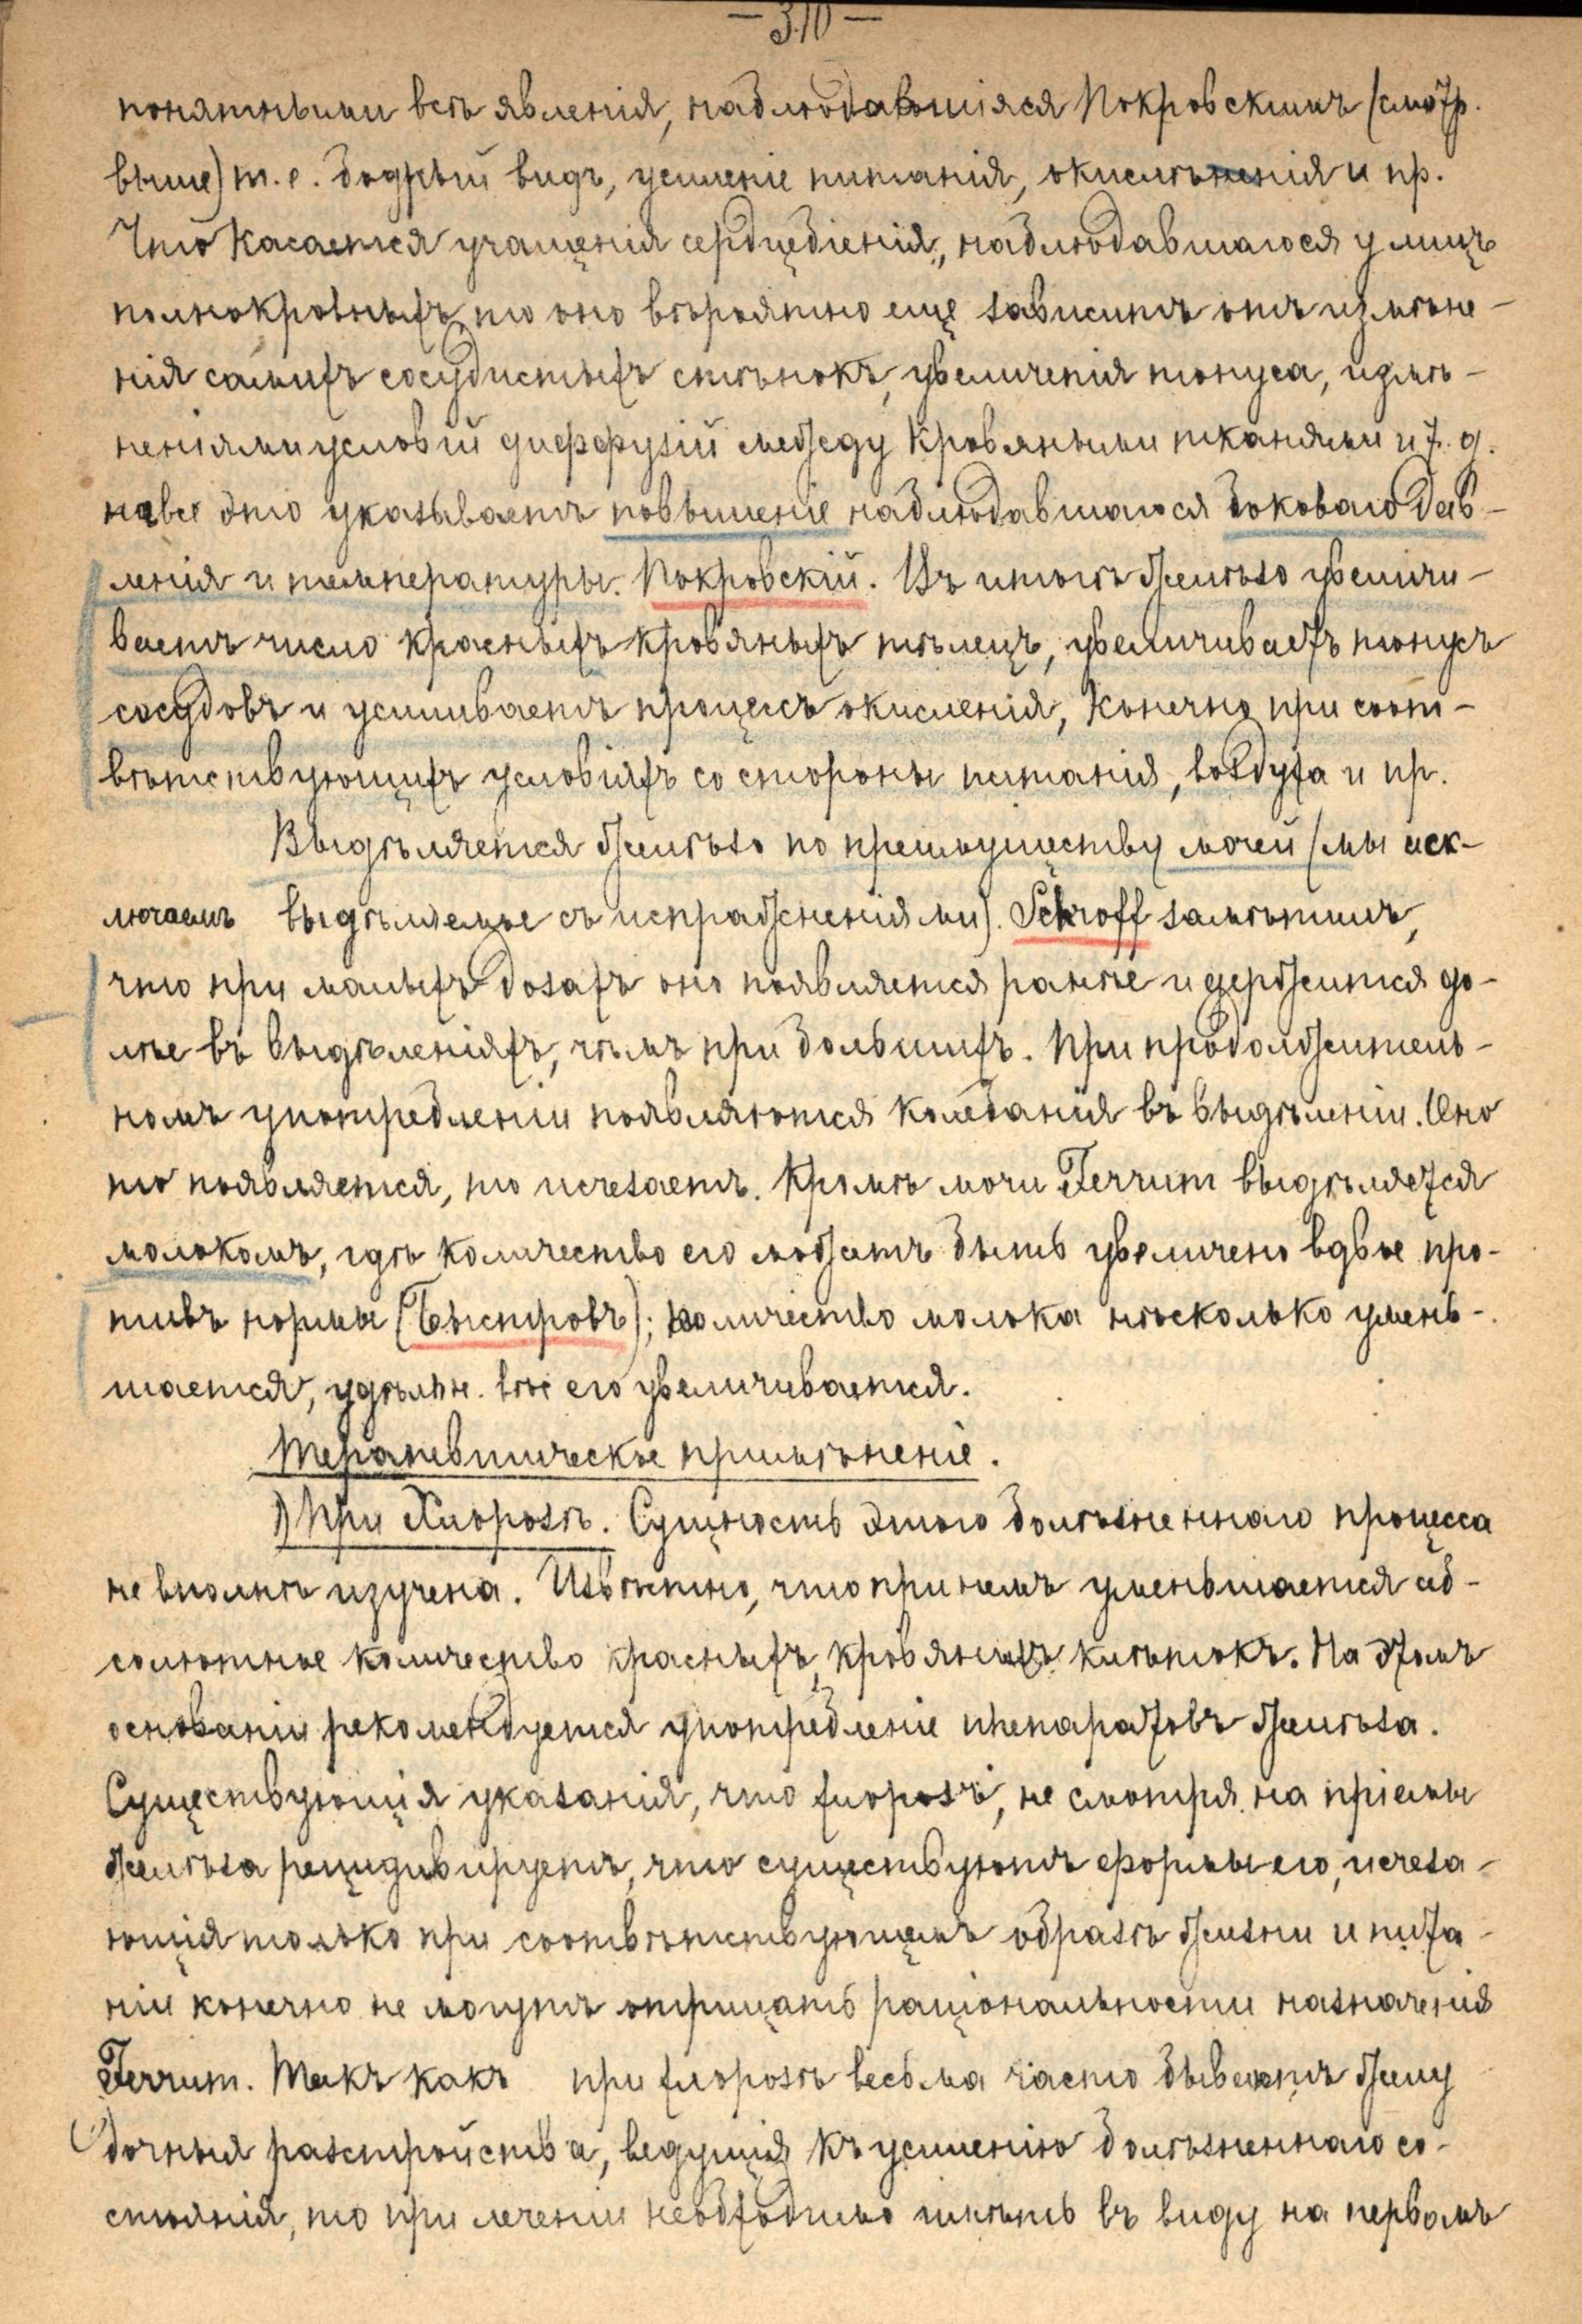 — 310 —
понятными всѣ явленія, наблюдавшіяся Покровскимъ (смотр.
выше) т. е. бодрый видъ, усиленіе питанія, окисленія и пр.
Что касается учащенія сердцебіенія, наблюдавшагося у лицъ
полнокровныхъ, то оно вѣроятно еще зависитъ отъ измѣне-
нія самихъ сосудистыхъ стѣнокъ, увеличенія тонуса, измѣ-
неніями условій диффузіи между кровяными тканями и т. д.
на все это указываетъ повышеніе наблюдавшагося боковаго дав-
ленія и температуры. Покровскій. Въ итогѣ желѣзо увеличи-
ваетъ число красныхъ кровяныхъ тѣлецъ, увеличиваетъ тонусъ
сосудовъ и усиливаетъ процессъ окисленія, конечно при соот-
вѣтствующихъ условіяхъ со стороны питанія, воздуха и пр.
Выдѣляется желѣзо по преимуществу мочей (мы иск-
лючаемъ выдѣляемое съ испражненіями). Schroff замѣтилъ,
что при малыхъ дозахъ оно появляется ранѣе и держится до-
лѣе въ выдѣленіяхъ, чѣмъ при большихъ. При продолжитель-
номъ употребленіи появляются колебанія въ выдѣленіи. Оно
то появляется, то исчезаетъ. Кромѣ мочи Ferrum выдѣляется
молокомъ, гдѣ количество его можетъ быть увеличено вдвое про-
тивъ нормы (Быстровъ); количество молока нѣсколько умень-
шается, удѣльн. вѣс его увеличивается.
Терапевтическое примѣненіе.
1) При Хлорозѣ. Сущность этого болѣзненнаго процесса
не вполнѣ изучена. Извѣстно, что при немъ уменьшается аб-
солютное количество красныхъ кровяныхъ клѣтокъ. На этомъ
основаніи рекомендуется употребленіе препаратовъ желѣза.
Существующія указанія, что хлорозъ, не смотря на пріемы
желѣза рецидивируетъ, что существуютъ формы его, исчеза-
ющія только при соотвѣтствующемъ образѣ жизни и пита-
ніи конечно не могутъ отрицать раціональности назначенія
Ferrum. Такъ какъ при хлорозѣ весьма часто бываютъ желу
дочныя разстройства, ведущія къ усиленію болѣзненнаго со-
стоянія, то при леченіи необходимо имѣть въ виду на первомъ